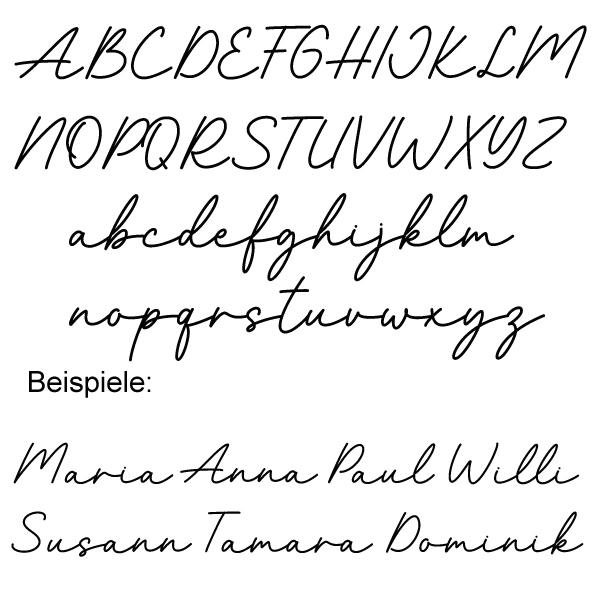 ABCDEFGHIJKLM
NOPQRSTUVWXYZ
abcdefghijklm
nopqrstuvwxyz
Beispiele:
Maria Anna Paul Willi
Susann Tamara Dominik